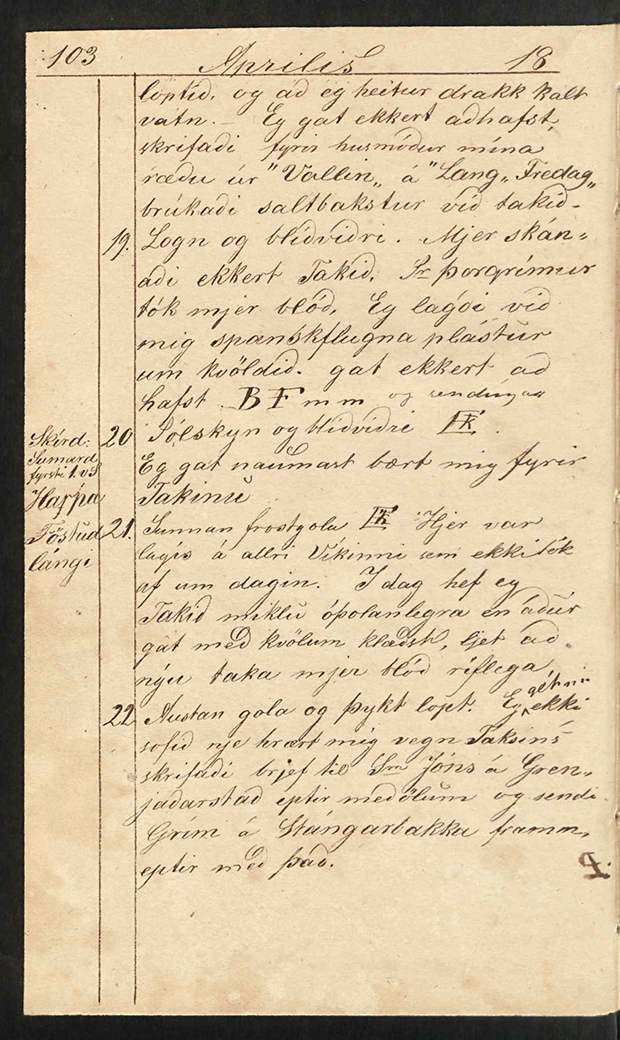 103 Aprilis 18
loptid, og ad eg heitur drakk kalt
vatn. – Eg gat ekkert adhafst,
skrifadi fyrir husmódur mína
rædu úr "Vallin„ á "Lang„Fredag„
brúkadi saltbakstur vid takid–
19. Logn og blídvidri. Mjer skán„
adi ekkert Takid, Sr Þorgrímur
tók mjer blód, Eg lagdi vid
mig spanskflugna plástur
um kvöldid. gat ekkert ad
hafst B F m m og sendingar
Skírd: 20 Sólskyn og blídvidri
Sumard
fyrsti 1. v S Eg gat naumast bært mig fyrir
Harpa Takinu
Föstud 21. Sunnan frostgola Hjer var
lángi lagís á allri Víkinni sem ekki tók
af um dagin. I dag hef eg
Takid miklu óþolanlegra en ádur
gat med kvölum klædst, ljet ad
nýu taka mjer blód ríflega
22 Austan gola og þykt lopt. Eg get nú ekki
sofid nje hrært mig vegn Taksins
skrifadi brjef til Sra Jóns á Gren„
jadarstad eptir medölum og sendi
Grím á Stángarbakka framm„
eptir med þad.